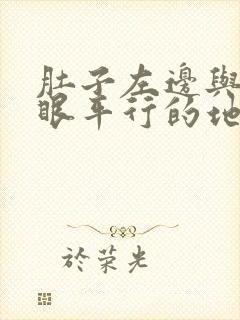 肚子左邊與
眼平行的地
於荣光